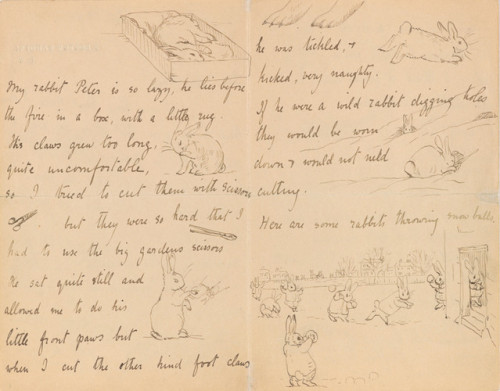 My rabbit Peter is so lazy, he lies before
the fire in a box, with a little rug.
His claws grew too long,
quite uncomfortable,
so I tried to cut them with scissors
but they were so hard that I
had to use the big gardens scissors
He sat quite still and
allowed me to do his
little front paws but
when I cut the other hind foot claws
he was tickled, &
kicked, very naughty.
If he were a wild rabbit digging holes
they would be worn
down & would not need
cutting.
Here are some rabbits throwing snow balls.